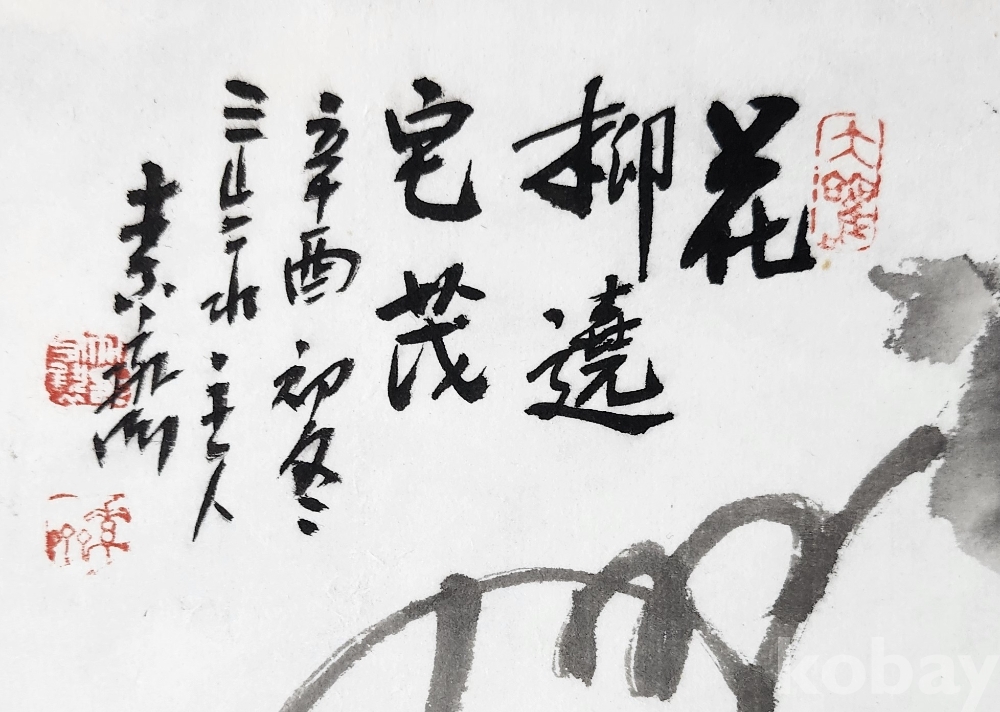 花
柳遶
宅茂
辛酉初冬
三山二水主人
素齋
kobay